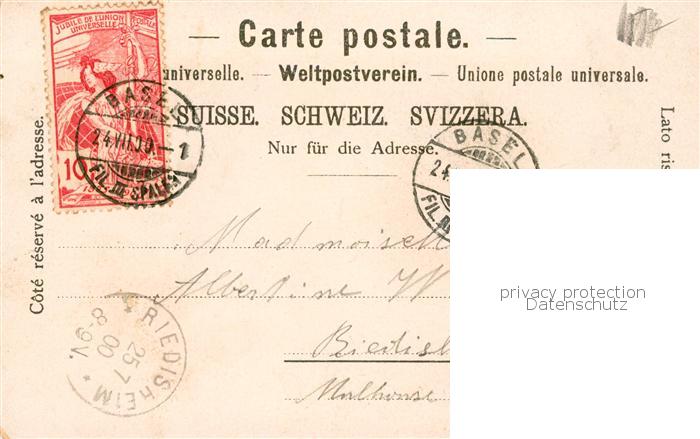 JUBILÉ DE L'UNION POSTALE
UNIVERSELLE
10
— Carte postale. —
universelle. — Weltpostverein. — Unione postale universale.
SUISSE. SCHWEIZ. SVIZZERA.
Nur für die Adresse.
BASEL
24.VII.00.–1
FIL. SPALEN
BASEL
24.
FIL.
Côté réservé à l'adresse.
Lato ris
Mademoisell
Albertine W
Riedish
Mulhouse
RIEDISHEIM
25 7
00
8-9V.
privacy protection
Datenschutz